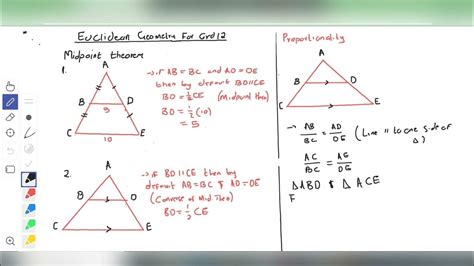 Euclidean Geometry For Grd 12
Midpoint theorem
1.
A
B
D
5
C
10
E
→ if AB = BC and AD = DE
then by default BD||CE
BD = 1/2 CE (Midpoint theo)
BD = 1/2 (10)
= 5
2.
A
B
D
C
E
→ if BD||CE then by
default AB=BC & AD=DE
(Converse of Mid. Theo)
BD = 1/2 CE
Proportionality
A
B
D
C
E
→ AB/BC = AD/DE (Line || to one side of Δ)
AC/BC = AE/DE
ΔABD & ΔACE